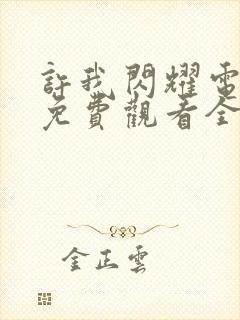 許我閃耀電
免費觀看全
金正雲